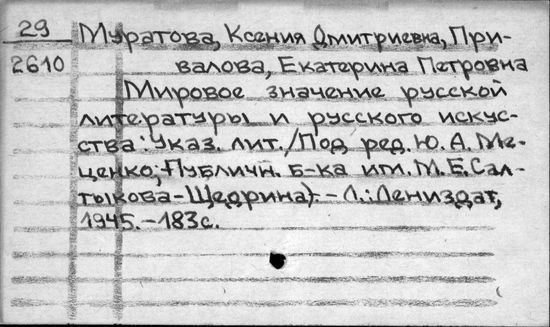 29 Муратова, Ксения Дмитриевна, При-
2610 валова, Екатерина Петровна
Мировое значение русской
литературы и русского искус-
ства: Указ. лит./Под ред. Ю. А. Ме-
ценко; Публичн. б-ка им. М. Е. Сал-
тыкова-Щедрина). - Л.: Лениздат,
1945. - 183с.